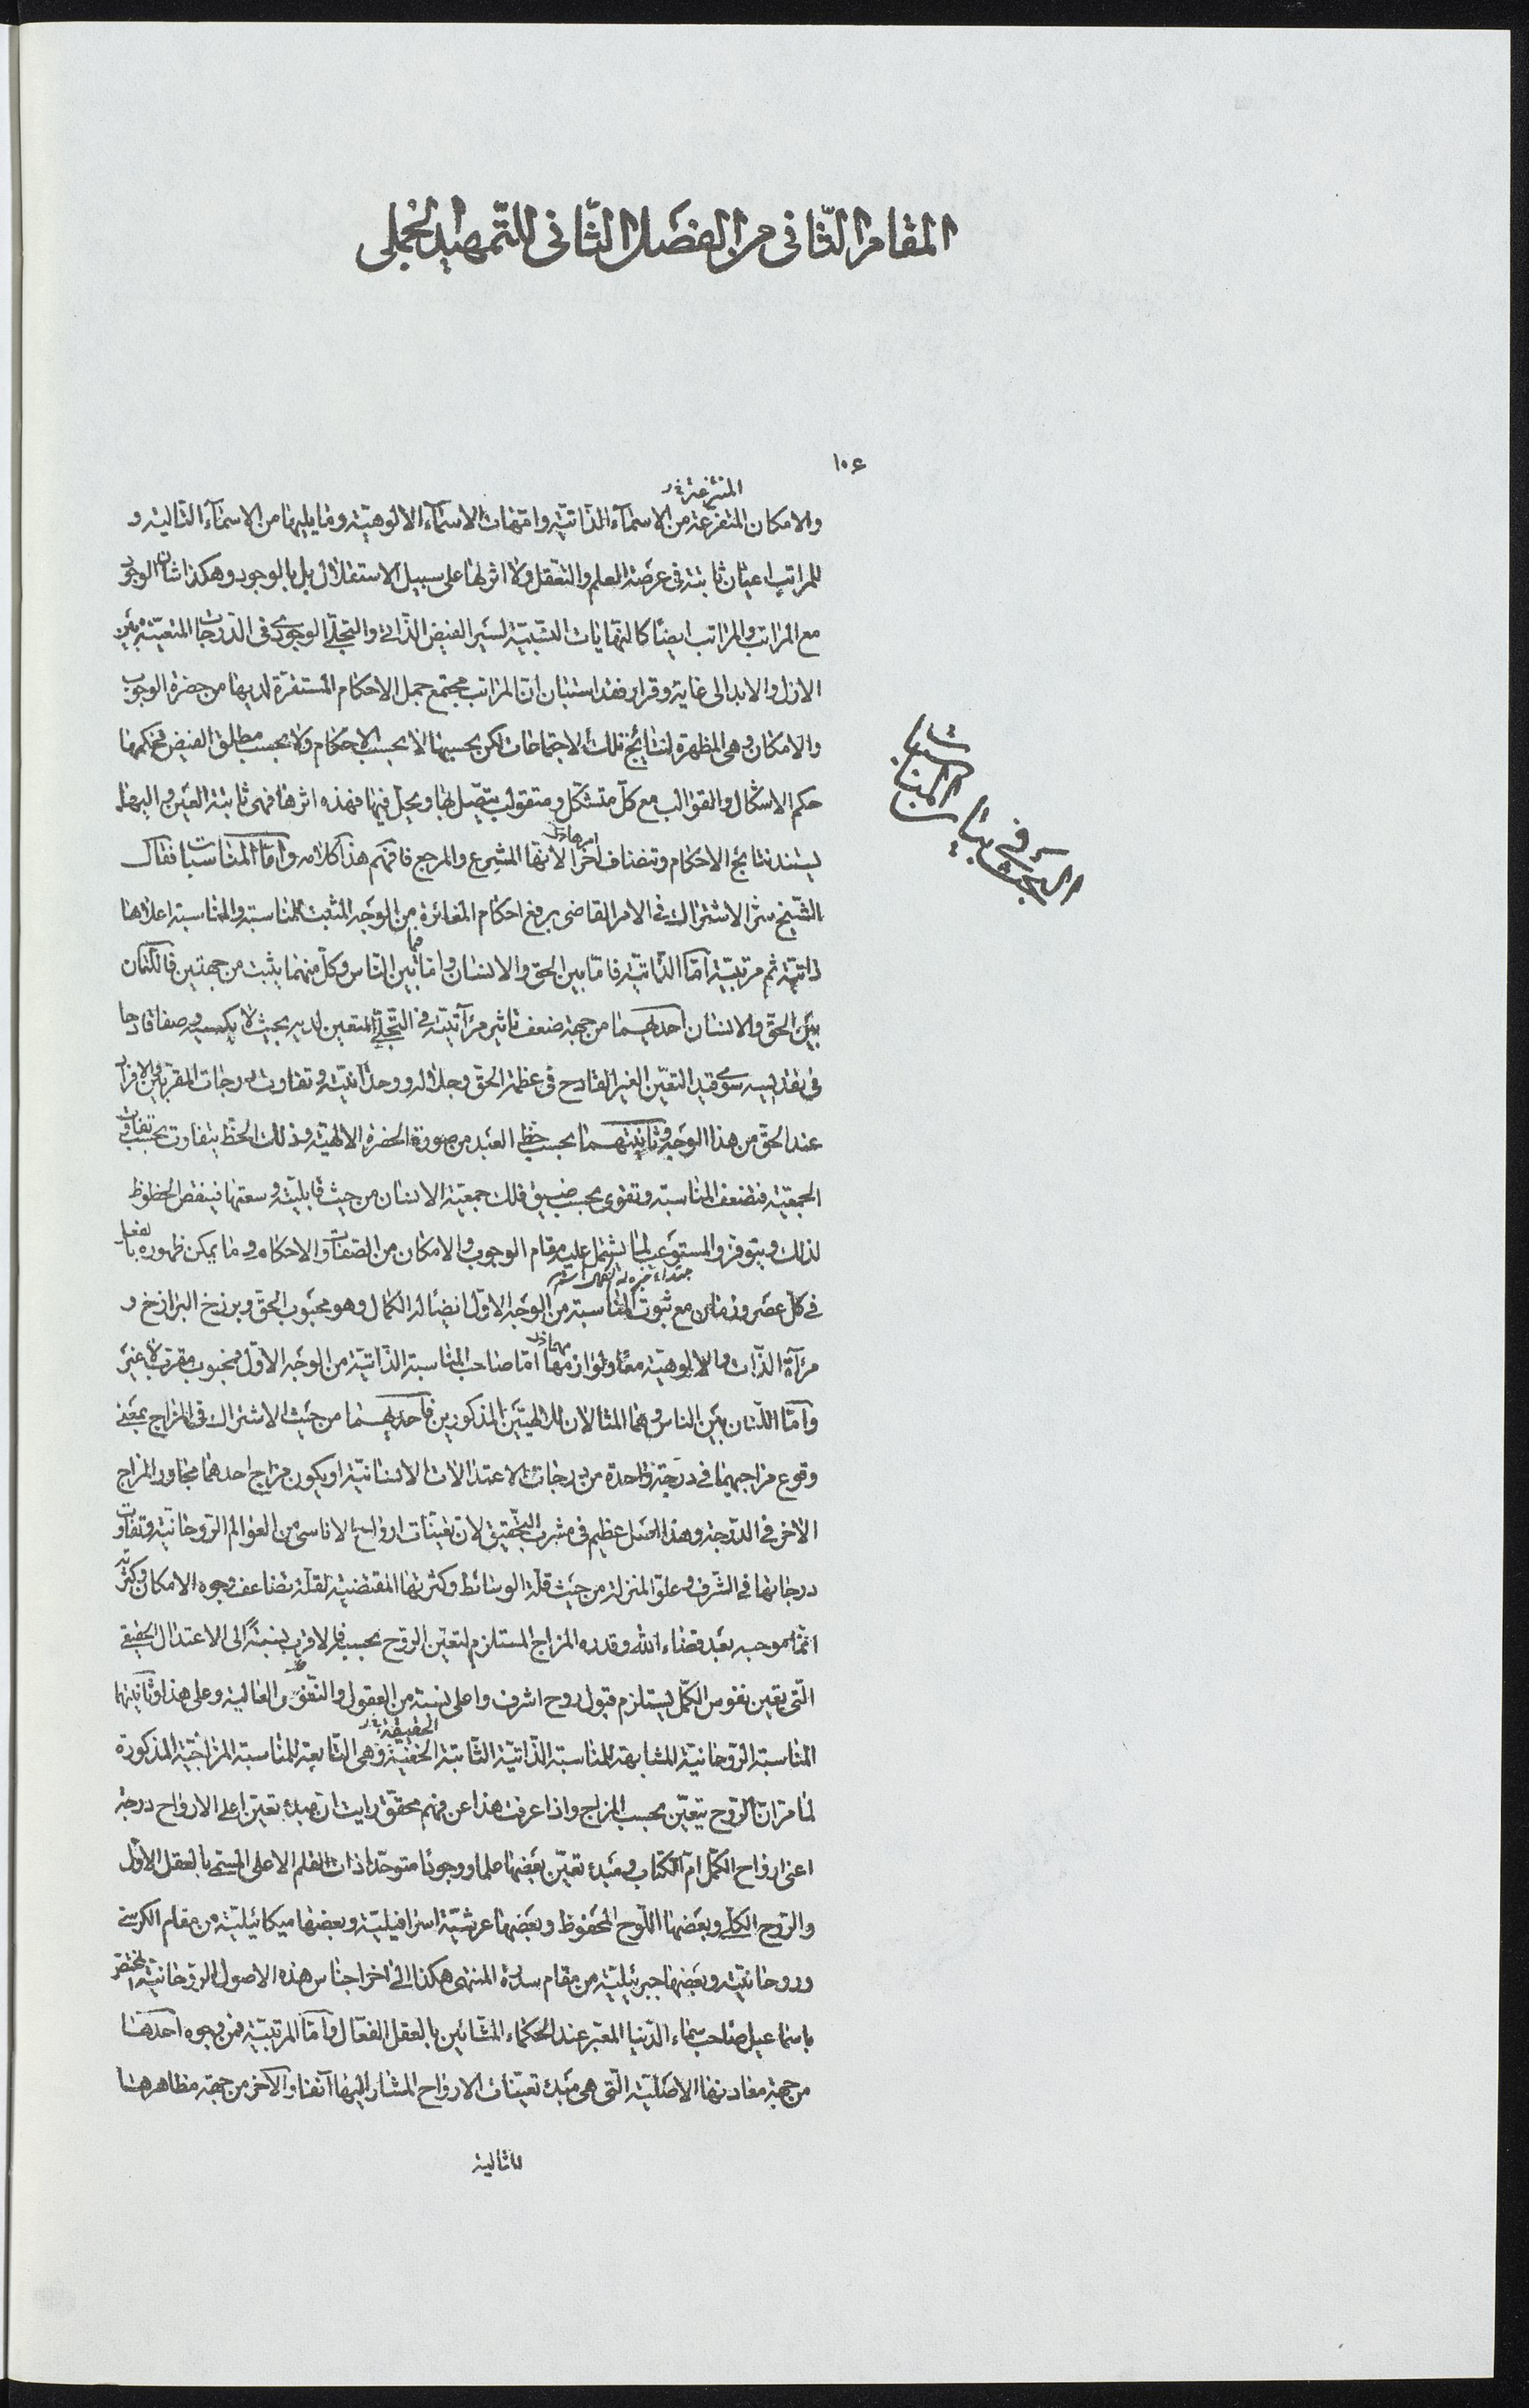 المقام الثّانى من الفصل الثّانى للتّمهيد الجملى
١٠٤
المنتزعة خ ر
والامكان المتفرعة من الاسمآء الذّاتيّة وامّهات الاسمآء الالوهيّة وما يليها من الاسمآء التالية و
للمراتب اعيان ثابتة فى عرصة العلم والتعقل ولا اثر لها على سبيل الاستقلال بل بالوجود وهكذا شان الوجود
مع المراتب والمراتب ايضًا كالنهايات النسبيّة لسير الفيض الذّاتى والتجلّى الوجودى فى الدّرجات المتعيّنة بين
الازل والابد الى غاية وقرار فقد استبان انّ المراتب مجتمع جمل الاحكام المستقرّة لديها من حضرة الوجوب
والامكان وهى المظهرة لنتايج تلك الاجتماعات لكن بحسبها لا بحسب الاحكام ولا بحسب مطلق الفيض فحكمها
حكم الاشكال والقوالب مع كلّ متشكّل ومتقولب يتصل بها ويحلّ فيها فهذه اثرها فهى ثابتة العين واليها
يستند نتايج الاحكام وتضاف اخرًا لانّها المشرع والمرجع فافهم هذا كلامه وامّا المناسبات فقال
الشّيخ سرّ الاشتراك فى الامر القاضى برفع احكام المغائرة من الوجه المثبت للمناسبة والمناسبة اعلاها
ذاتيّة ثم مرتبيّة امّا الذّاتيّة فامّا بين الحق والانسان وامّا فيما بين النّاس وكلّ منهما يثبت من جهتين فاللّتان
بين الحقّ والانسان احديهما من جهة ضعف تاثير مرآتيّته فى التجلّى المتعين لديه بحيث لا يكسبه وصفا قادحا
فى تقديسه سوى قيد التعيّن الغير القادح فى عظمة الحقّ وجلاله ووحدانيّته وتفاوت درجات المقربين والافراد
عند الحقّ من هذا الوجه وثانيتهما بحسب حظ العبد من صورة الحضرة الالهيّة وذلك الحظّ يتفاوت بحسب تفاوت
الجمعيّة فتضعف المناسبة وتقوى بحسب ضيق فلك جمعيّة الانسان من حيث قابليّته وسعتها فينقص الحظوظ
لذلك ويتوفر والمستوعب لما يشتمل عليه مقام الوجوب والامكان من الصفات والاحكام وما يمكن ظهوره بالفعل
فى كلّ عصر وزمان مع ثبوت المناسبة من الوجه الاول ايضًا له الكمال وهو محبوب الحق وبرزخ البرازخ و
مرآة الذّات والالوهيّة معًا ولوازمها امّا صاحب المناسبة الذّاتيّة من الوجه الاوّل فمحبوب مقرب لا غير
وامّا اللّتان بين الناس وهما المثالان للالهيّتين المذكورين فاحديهما من حيث الاشتراك فى المزاج بمعنى
وقوع مزاجيهما فى درجة واحدة من درجات الاعتدالات الانسانيّة او يكون مزاج احدهما مجاور المزاج
الاخر فى الدّرجة وهذا اصل عظيم فى مشرب التحقيق لان تعيّنات ارواح الاناسى من العوالم الرّوحانيّة وتفاوت
درجاتها فى الشّرف وعلوّ المنزلة من حيث قلّة الوسائط وكثرتها المقتضية لقلّة تضاعف وجوه الامكان وكثرته
انّما موجبه بعد قضاء الله وقدره المزاج المستلزم لتعيّن الرّوح بحسبه فالاقرب نسبةً الى الاعتدال الحقيقى
الّتى يعين نفوس الكمّل يستلزم قبول روح اشرف واعلى نسبة من العقول والنّفوس العالية وعلى هذا وثانيتهما
الحقيقيّة خ ر
المناسبة الرّوحانيّة المشابهة للمناسبة الذّاتيّة الثّابتة الخفيّة وهى التّابعة للمناسبة المزاجيّة المذكورة
لما مرّ انّ الرّوح يتعيّن بحسب المزاج واذا عرفت هذا عن فهم محقّق رايت ان مبدء تعيّن اعلى الارواح درجة
اعنى ارواح الكمّل امّ الكتاب ومبدء تعيّن بعضها علما ووجودًا متوحّدا ذات القلم الاعلى المسمّى بالعقل الاوّل
والرّوح الكلّى وبعضها اللّوح المحفوظ وبعضها عرشيّة اسرافيليّة وبعضها ميكائيليّة من مقام الكرسى
وروحانيّته وبعضها جبرئيليّة من مقام سدرة المنتهى هكذا الى اخر اجناس هذه الاصول الرّوحانيّة المختصّ
باسماعيل صاحب سماء الدّنيا المعبّر عند الحكماء المشّائين بالعقل الفعّال وامّا المرتبيّة فمن وجوه احدها
من جهة معادنها الاصليّة الّتى هى مبدء تعيّنات الارواح المشار اليها آنفا والآخر من جهة مظاهرها
المثالية
البحث فى بيان المناسبات